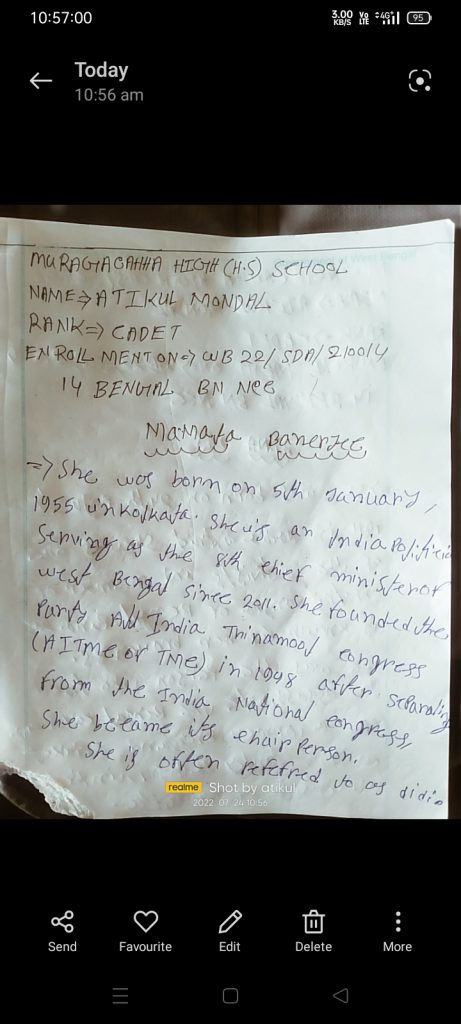 10:57:00
3.00 KB/S Vo LTE 4G+ 95
Today
10:56 am
MURAGACHHA HIGH (H.S) SCHOOL
NAME⇒ATIKUL MONDAL
RANK⇒ CADET
ENROLLMENT ON⇒ WB 22/ SDA/ 210014
14 BENGAL BN NCC
Mamata Banerjee
⇒ She was born on 5th January,
1955 in Kolkata. She is an India Politicia
Serving as the 8th chief minister of
West Bengal since 2011. She founded the
Party All India Trinamool congress
(AITMC or TMC) in 1948 after separating
From the India National congress,
She became its chair Person.
She is often refefred to as didi.
realme Shot by atikul
2022.07.24 10:56
Send Favourite Edit Delete More